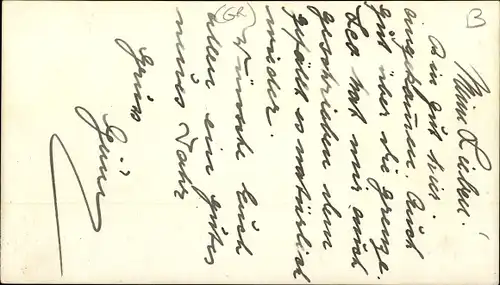 Meine Lieben!
Bin gut hier
angekommen. Auch
gut über die Grenze.
Leo hat mir auch
geschrieben dem
gefällt es natürlich
wieder.
Wünsche Euch
allen ein gutes
neues Jahr
Gruss
(GR)
B